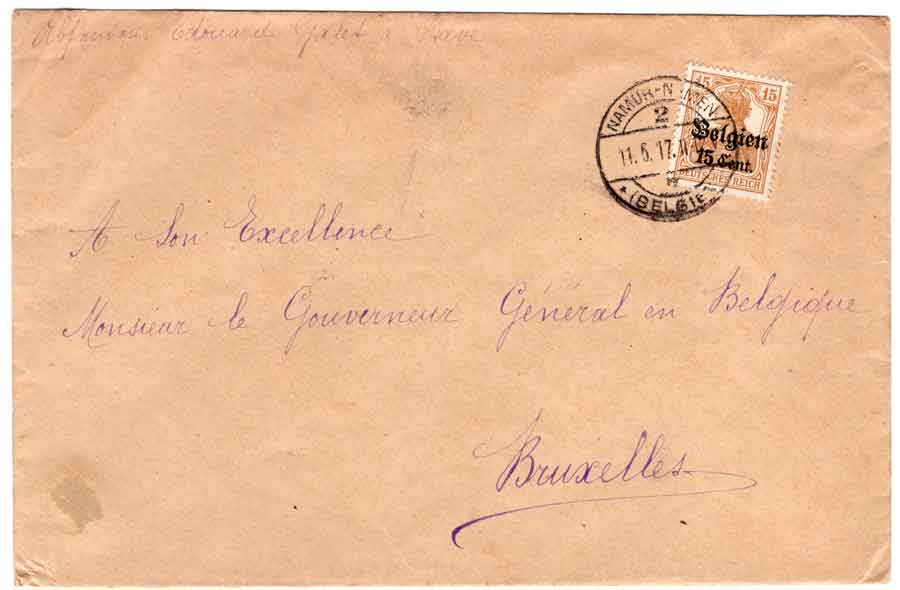 Edouard
NAMUR-N MEN
2
11. 5. 17.
(BELGIË
15 15
Belgien
15 Cent.
DEUTSCHES REICH
A Son Excellence
Monsieur le Gouverneur Général en Belgique
Bruxelles